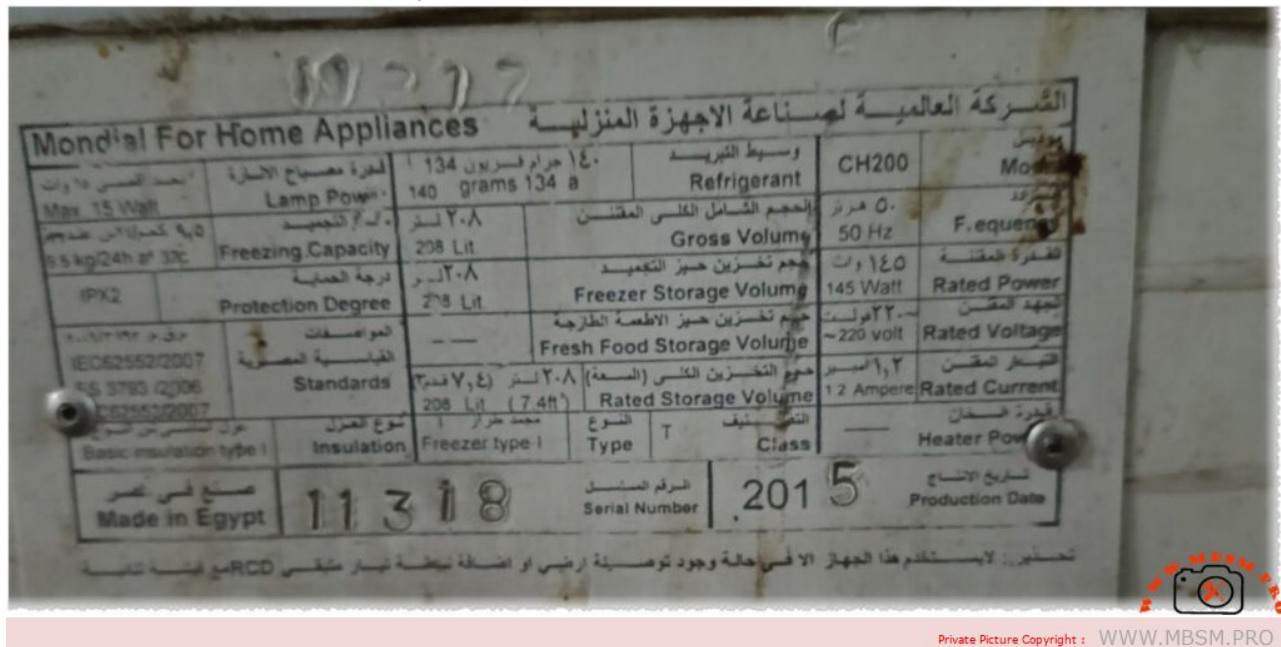 Mondial For Home Appliances الشركة العالمية لصناعة الاجهزة المنزلية
Max. 15 Watt
Lamp Power
قدرة مصباح الانارة
١٤٠ جرام فريون 134 أ
140 grams 134 a
وسيط التبريد
Refrigerant
CH200
موديل
Freezing Capacity
٢٠٨ لتر
208 Lit.
الحجم الشامل الكلى المقنن
Gross Volume
٥٠ هرتز
50 Hz
التردد
F.equency
IPX2
درجة الحماية
Protection Degree
٢٠٨
حجم تخزين حيز التجميد
Freezer Storage Volume
١٤٥ وات
145 Watt
القدرة المقننة
Rated Power
IEC62552/2007
3793 /2006
62552/2007
المواصفات
القياسية المصرية
Standards
— —
حجم تخزين حيز الاطعمة الطازجة
Fresh Food Storage Volume
~٢٢٠ فولت
~220 volt
الجهد المقنن
Rated Voltage
٢٠٨ لتر (٧,٤ قدم٣)
208 Lit (7.4ft³)
حجم التخزين الكلى (السعة)
Rated Storage Volume
١,٢ امبير
1.2 Ampere
التيار المقنن
Rated Current
Basic insulation type I
نوع العزل
Insulation
مجمد طراز I
Freezer type I
النوع
Type
T
التصنيف
Class
—
قدرة السخان
Heater Pow
صنع فى مصر
Made in Egypt
11318
الرقم المسلسل
Serial Number
.2015
تاريخ الانتاج
Production Date
تحذير : لايستخدم هذا الجهاز الا فى حالة وجود توصيلة ارضي او اضافة نبيطة تيار متبقى RCD
Private Picture Copyright : WWW.MBSM.PRO
WWW.MBSM.PRO